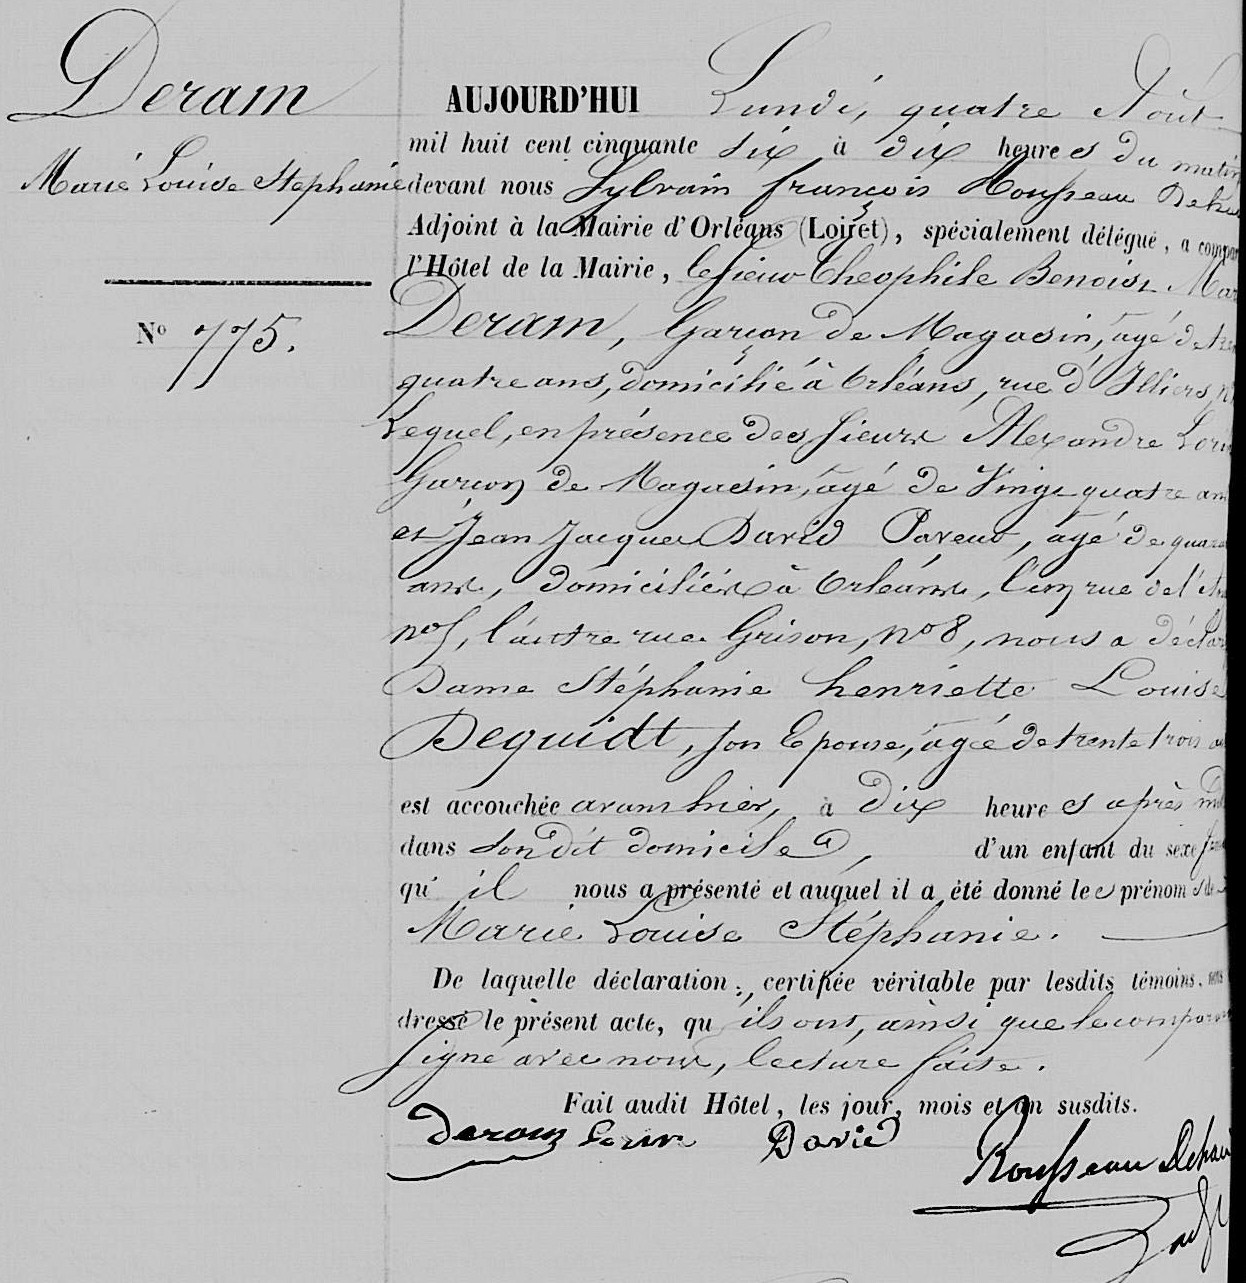 Deram
Marie Louise Stephanie
No 775.
AUJOURD'HUI Lundi, quatre Août
mil huit cent cinquante six à dix heures du matin
devant nous Sylvain françois Rousseau Deha
Adjoint à la Mairie d'Orléans (Loiret), spécialement délégué, a compar
l'Hôtel de la Mairie, le sieur Theophile Benoist Mar
Deram, Garçon de Magasin, âgé de tren
quatre ans, domicilié à Orléans, rue d'Illiers, n°
Lequel, en présence des sieurs Alexandre Lorin
Garçon de Magasin, âgé de Vingt quatre ans
et Jean Jacques David Paveur, âgé de quara
ans, domiciliés à Orléans, l'un rue de l'
n° 5, l'autre rue Grison, n° 8, nous a déclar
Dame Stéphanie henriette Louise
Dequidt, son Epouse, âgée de trente trois a
est accouchée avant hier, à dix heures après mi
dans son dit domicile, d'un enfant du sexe fém
qu'il nous a présenté et auquel il a été donné les prénoms de
Marie Louise Stéphanie.
De laquelle déclaration, certifiée véritable par lesdits témoins, nous
dressé le présent acte, qu'ils ont, ainsi que le comparant
signé avec nous, lecture faite.
Fait audit Hôtel, les jour, mois et an susdits.
Deram Lorin David
Rousseau Dehau